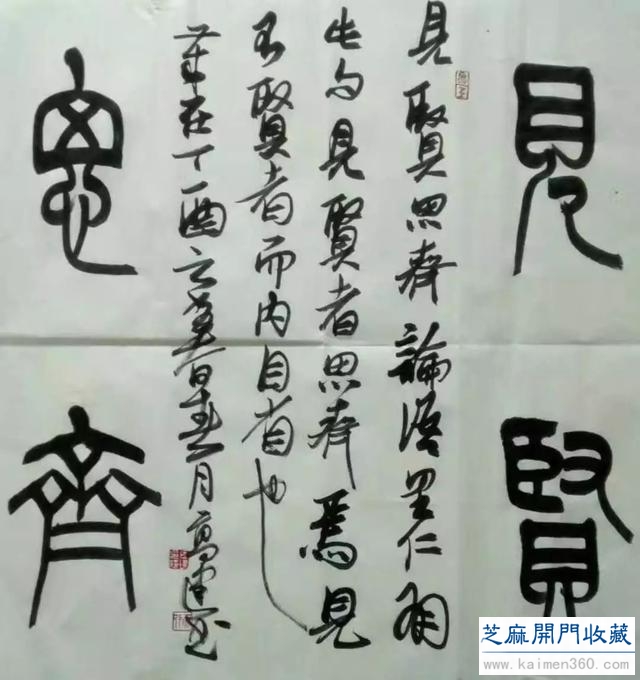 見賢
見賢思齊論語里仁
句見賢者思齊焉見
不賢者而内自省也
在丁酉之暮春月高
思齊
芝麻開門收藏
www.kaimen360.com